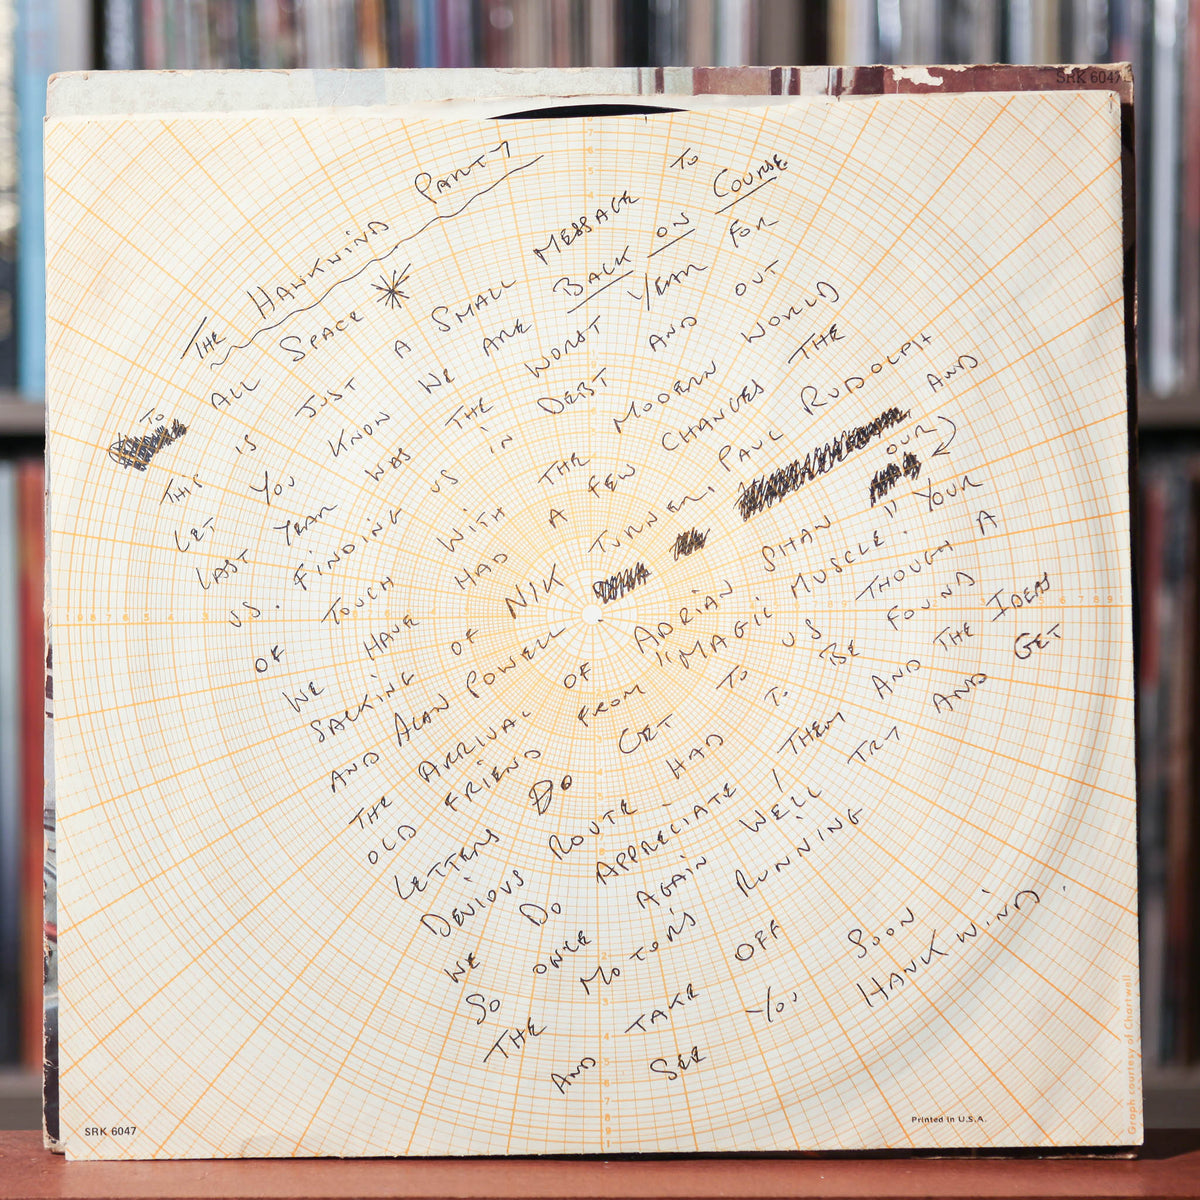 SRK 6047
THE HAWKWIND PARTY
TO ALL SPACE
THIS IS JUST A SMALL MESSAGE TO
LET YOU KNOW WE ARE BACK ON COURSE
LAST YEAR WAS THE WORST YEAR FOR
US. FINDING US IN DEBT AND OUT
OF TOUCH WITH THE MODERN WORLD
WE HAVE HAD A FEW CHANGES THE
SACKING OF NIK TURNER, PAUL RUDOLPH
AND ALAN POWELL AND
THE ARRIVAL OF ADRIAN SHAW OUR
OLD FRIEND FROM "MAGIC MUSCLE". YOUR
LETTERS DO GET TO US THOUGH A
DEVIOUS ROUTE HAD TO BE FOUND
WE DO APPRECIATE THEM AND THE IDEAS
SO ONCE AGAIN WE'LL TRY AND GET
THE MOTORS RUNNING
AND TAKE OFF
SEE YOU SOON
HAWKWIND.
Graph courtesy of Chartwell
SRK 6047
Printed in U.S.A.